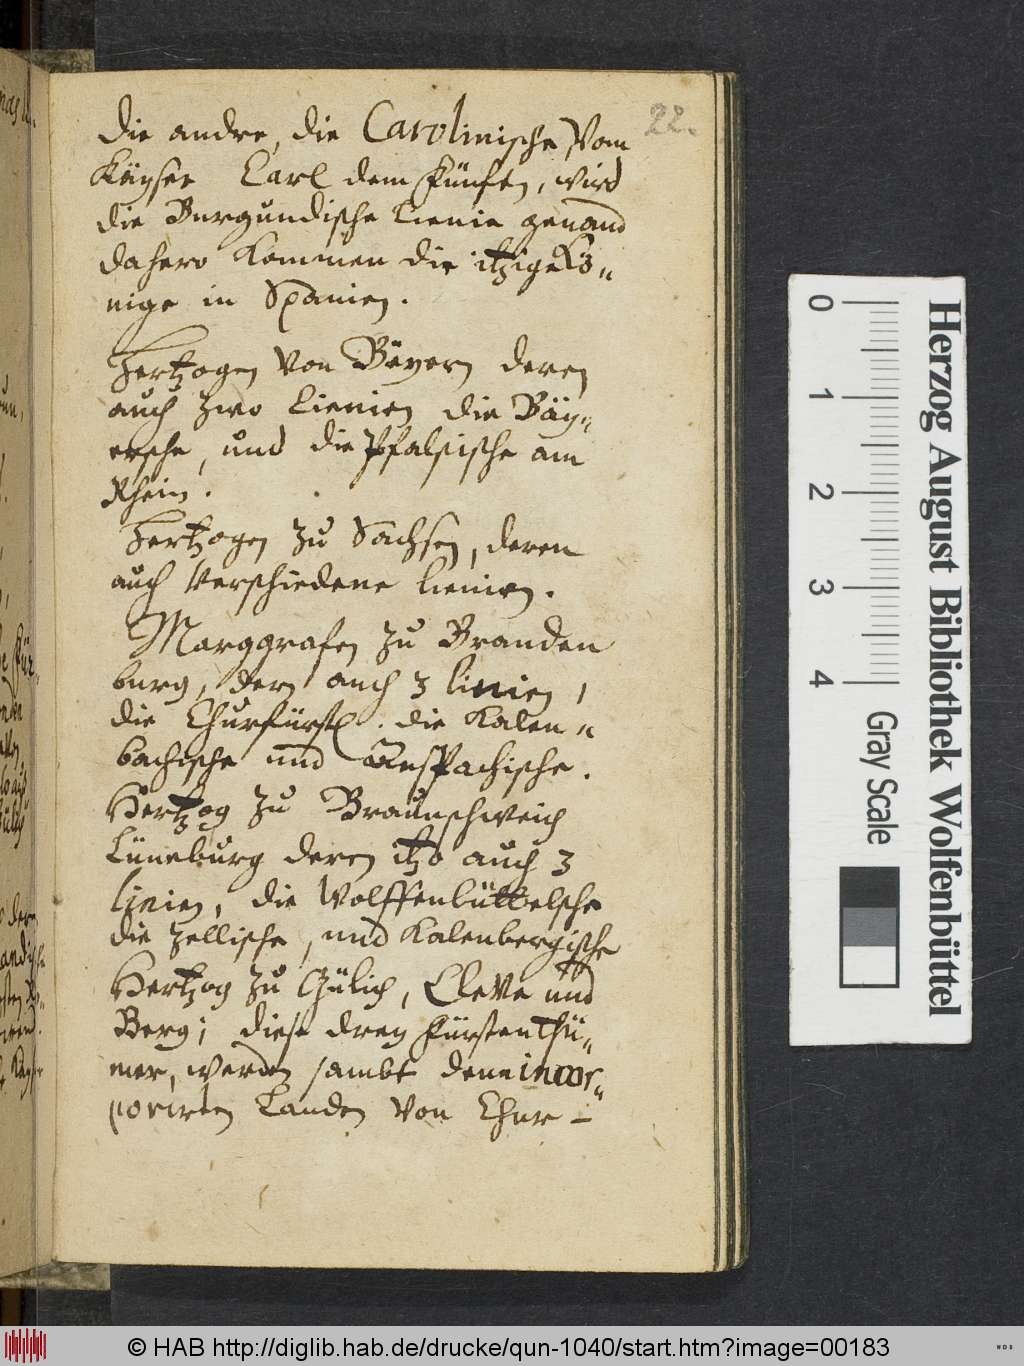 22.
die andre, die Carolinische, vom
Käyser Carl dem Fünften, wird
die Burgundische Lienie genand
dahero kommen die itzige Kö„
nige in Spanien.
Hertzogen von Bäyern deren
auch zwo Lienien die Bäy„
ersche, und die Pfalsische am
Rhein.
Hertzogen zu Sachsen, deren
auch verschiedene Lienien.
Marggrafen zu Branden
burg, dern auch 3 linien,
die Churfürstl. die Kulen„
bachische und Anspachische.
Hertzog zu Braunschweich
Lüneburg deren itzo auch 3
linien, die Wolffenbüttelsche
die Zellische, und Kalenbergische
Hertzog zu Gülich, Cleve und
Berg; diese drey Fürstenthü„
mer, werden sambt denen incor„
porirten Landen von Chur–
Herzog August Bibliothek Wolfenbüttel
0 1 2 3 4
Gray Scale
© HAB http://diglib.hab.de/drucke/qun-1040/start.htm?image=00183